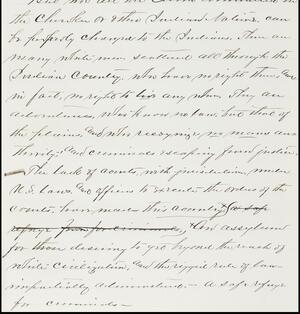 the Cherokee or other Indian Nations, can
be properly charged to the Indians. There are
many white men scattered all through the
Indian Country, who have no right there and
in fact, no right to live any where. They are
adventurers, who know no law, but that of
the plains and who recognize no man's au-
thority, and criminals escaping from justice.
The lack of courts, with jurisdiction, under
U.S. laws, and officers to execute the orders of the
courts, have made this country (a safe
refuge from for criminals,) An assylum
for those desiring to get beyond the reach of
white civilization, and the rigid rule of law
impartially administered – a safe refuge
for criminals –